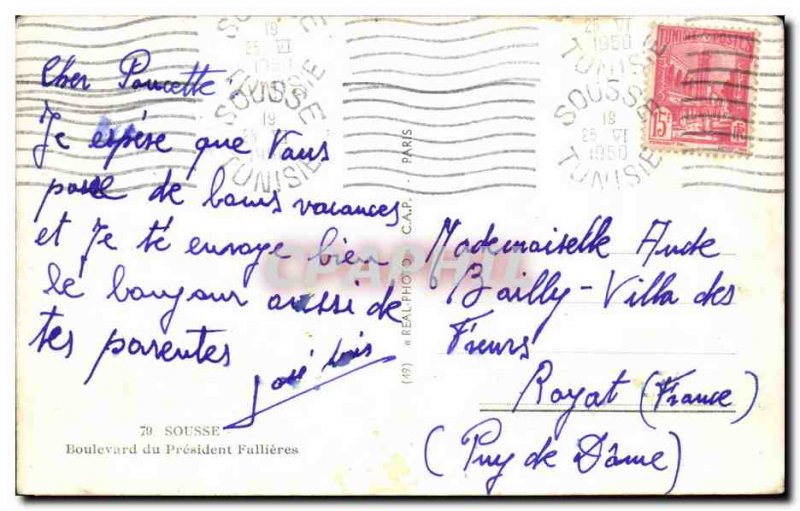 Cher Poucette
Je espère que Vous
passe de bons vacances
et Je te envoye bien
le bonjour aussi de
tes parentes
José Luis
79 SOUSSE
Boulevard du Président Fallières
(49) « REAL-PHOTO » C.A.P. - PARIS
SOUSSE
19
25 VI
1950
TUNISIE
SOUSSE
19
25 VI
1950
TUNISIE
25 VI
1950
TUNISIE
SOUSSE
19
25 VI
1950
TUNISIE
TUNISIE POSTES
15F
Mademoiselle Aude
Bailly - Villa des
Fleurs
Royat (France)
(Puy de Dôme)
CPAPHIL